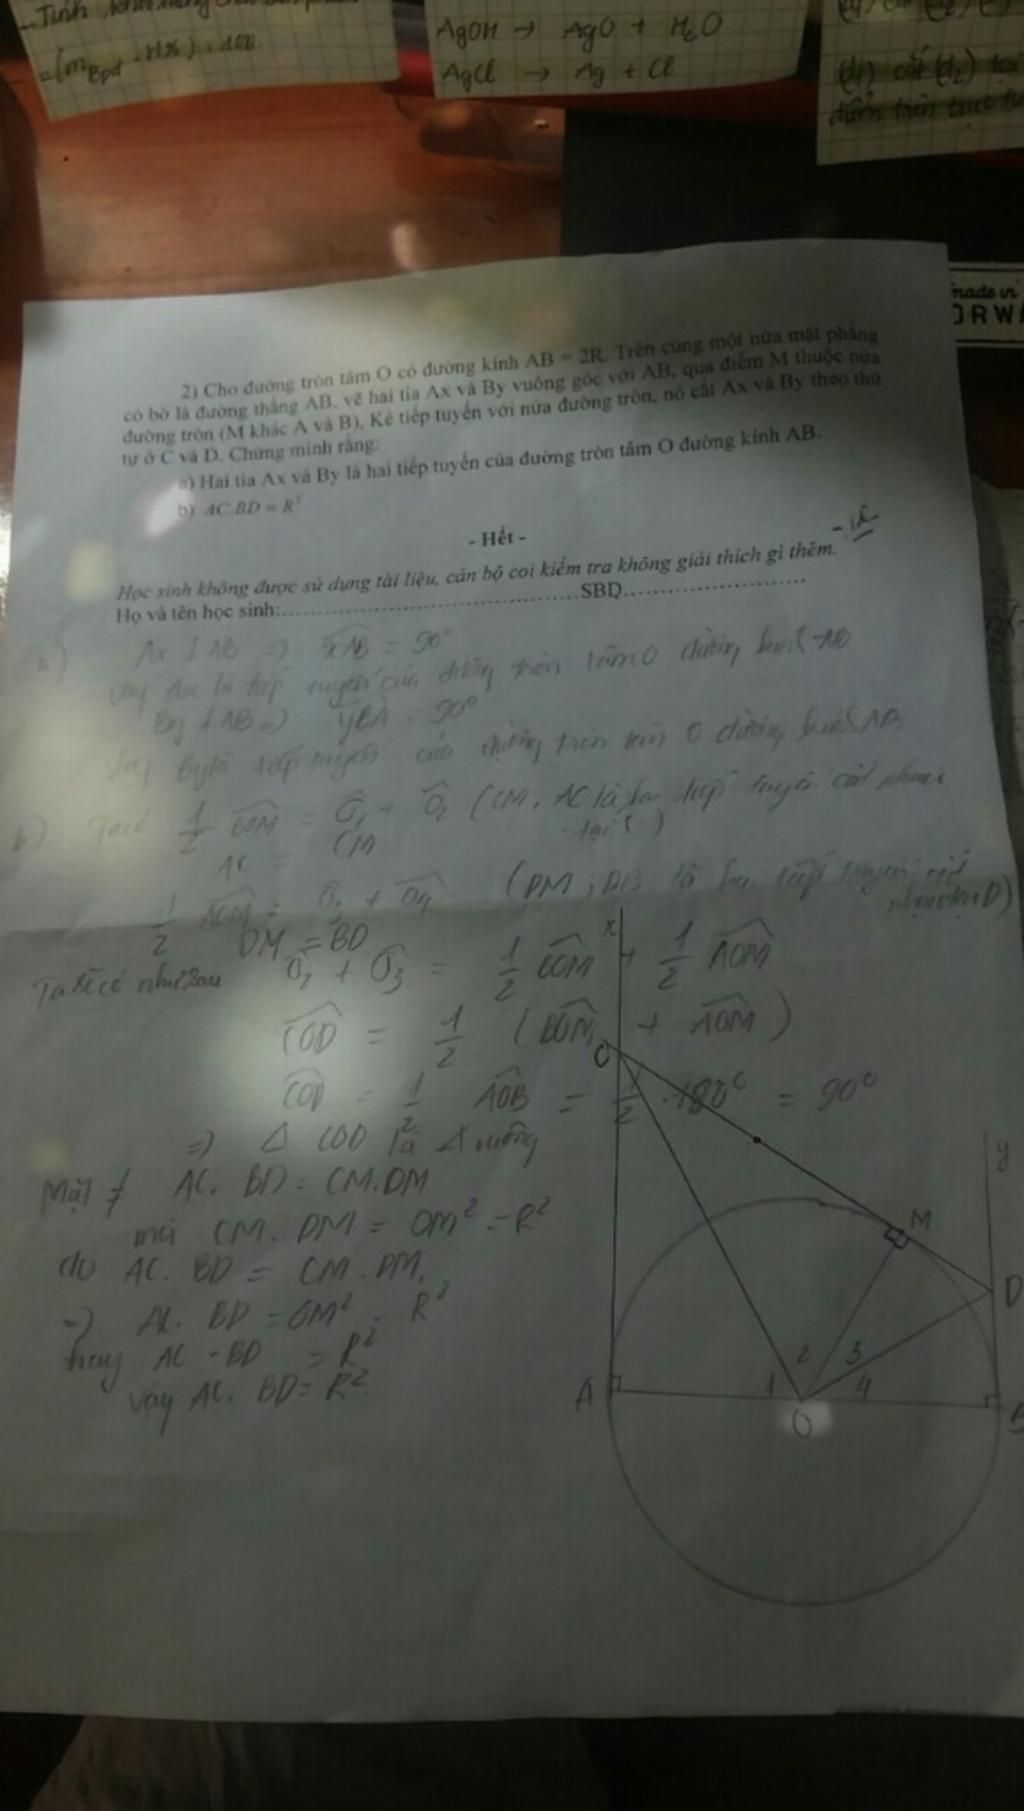 - Tính
= (m . H%) : 100
AgOH → AgO + H₂O
AgCl → Ag + Cl
(d₁) cắt (d₂) tại
điểm trên trục tu
made in
ORWA
2) Cho đường tròn tâm O có đường kính AB = 2R. Trên cùng một nửa mặt phẳng
có bờ là đường thẳng AB, vẽ hai tia Ax và By vuông góc với AB, qua điểm M thuộc nửa
đường tròn (M khác A và B), Kẻ tiếp tuyến với nửa đường tròn, nó cắt Ax và By theo thứ
tự ở C và D. Chứng minh rằng:
a) Hai tia Ax và By là hai tiếp tuyến của đường tròn tâm O đường kính AB.
b) AC.BD = R²
- Hết -
Học sinh không được sử dụng tài liệu, cán bộ coi kiểm tra không giải thích gì thêm.
Họ và tên học sinh:..............................................SBD............................
a) Ax ⊥ AB => xAB = 90°
Vậy Ax là tiếp tuyến của đường tròn tâm O đường kính AB
By ⊥ AB => yBA = 90°
Vậy By là tiếp tuyến của đường tròn tâm O đường kính AB
b) Ta có 1/2 BOM = O₁ + O₂ (CM, AC là hai tiếp tuyến cắt nhau
tại C)
AC = CM
1/2 AOM = O₃ + O₄ (DM, DB là hai tiếp tuyến cắt
nhau tại D)
DM = BD
Ta sẽ có như sau O₂ + O₃ = 1/2 BOM + 1/2 AOM
COD = 1/2 (BOM + AOM)
COD = 1/2 AOB = 1/2 . 180° = 90°
=> Δ COD là Δ vuông
Mặt ≠ AC. BD = CM.DM
mà CM. DM = OM² = R²
do AC. BD = CM. DM
=> AC. BD = OM² = R²
hay AC . BD = R²
Vậy AC. BD = R²
x
C
y
M
D
2 3
A 1 4 B
O